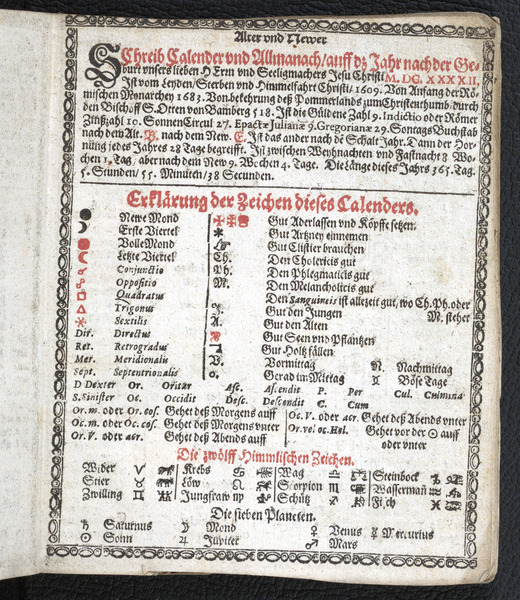 Alter vnd Newer
Schreib Calender vnd Allmanach/auff dz Jahr nach der Ge-
burt vnsers lieben HErrn vnd Seeligmachers Jesu Christi M. DC. XXXXII.
Ist vom Leyden/Sterben vnd Himmelfahrt Christi/1609. Von Anfang der Rö-
mischen Monarchey 1683. Von bekehrung deß Pommerlands zum Christenthumb/durch
den Bischoff S. Otten von Bamberg 518. Ist die Güldene Zahl 9. Indictio oder Römer
Zinßzahl 10. Sonnen Circul 27. Epactæ Julianæ 9. Gregorianæ 29. Sontags Buchstab
nach dem Alt. B. nach dem New. E. Ist das ander nach dē Schalt Jahr. Dann der Hor-
nung jedes Jahres 28 Tage begreifft. Ist zwischen Weyhnachten vnd Fastnacht 8 Wo-
chen 1. Tag/ aber nach dem New 9. Wochen 4. Tage. Die Länge dieses Jahrs 365. Tag.
5. Stunden/ 55. Minuten/ 38 Secunden.
Erklärung der Zeichen dieses Calenders.
● Newe Mond Gut Aderlassen vnd Köpffe setzen:
☽ Erste Viertel Gut Artzney einnemen
● Volle Mond Gut Clistier brauchen
☾ Letzte Viertel Ch. Den Cholericis gut
☌ Conjunctio Ph. Den Phlegmaticis gut
☍ Oppositio M. Den Melancholicis gut
□ Quadratus Den Sanguineis ist allezeit gut, wo Ch. Ph. oder
△ Trigonus Gut den Jungen M. stehet
⚹ Sextilis A. Gut den Alten
Dir. Directus Gut Seen vnd Pflantzen
Ret. Retrogradus Gut Holtz fällen
Mer. Meridionalis V. Vormittag N. Nachmittag
Sept. Septentrionalis o. Gerad im Mittag Böse Tage
D Dexter Or. Oritur Asc. Ascendit P. Per Cul. Culmina
S. Sinister Oc. Occidit Desc. Descendit C. Cum
Or. m. oder Or. cos. Gehet deß Morgens auff Oc. V. oder acr. Gehet deß Abends vnter
Oc. m. oder Oc. cos. Gehet deß Morgens vnter Or. vel oc. Hel. Gehet vor der ☉ auff
Or. V. oder acr. Gehet deß Abends auff oder vnter
Die zwölff Himmlischen Zeichen.
Wider ♈ Krebs ♋ Wag ♎ Steinbock ♑
Stier ♉ Löw ♌ Scorpion ♏ Wasserman ♒
Zwilling ♊ Jungfraw ♍ Schütz ♐ Fisch ♓
Die sieben Planeten.
♄ Saturnus ☽ Mond ♀ Venus ☿ Mercurius
☉ Sonn ♃ Jupiter ♂ Mars